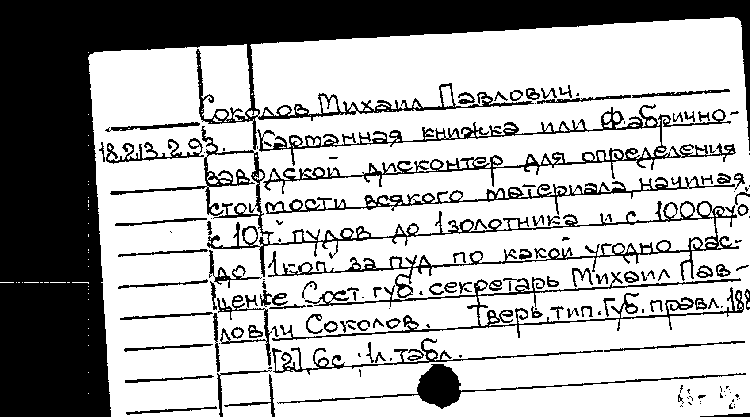 Соколов, Михаил Павлович.
18.213.2.93. Карманная книжка или Фабрично-
заводской дисконтер для определения
стоимости всякого материала, начиная
с 10т. пудов до 1золотника и с 1000руб.
до 1коп. за пуд по какой угодно рас-
ценке. Сост. губ. секретарь Михаил Пав-
лович Соколов. Тверь, тип. Губ. правл., 188
[2], 6с.; 1л. табл.